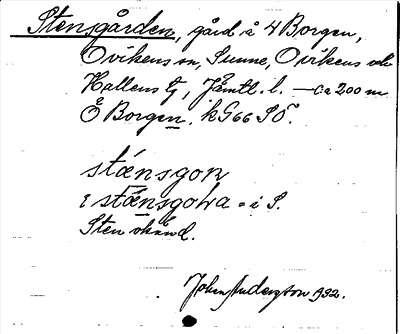 Stensgården, gård å 4 Borgen,
Ovikens sn, Sunne, Ovikens och
Hallens tg, Jämtl. l. — ca 200 m
Ö Borgen. kG66 SÖ.
stænsgon
i stænsgoha = i S.
Sten okänd.
John Anderson 1932.